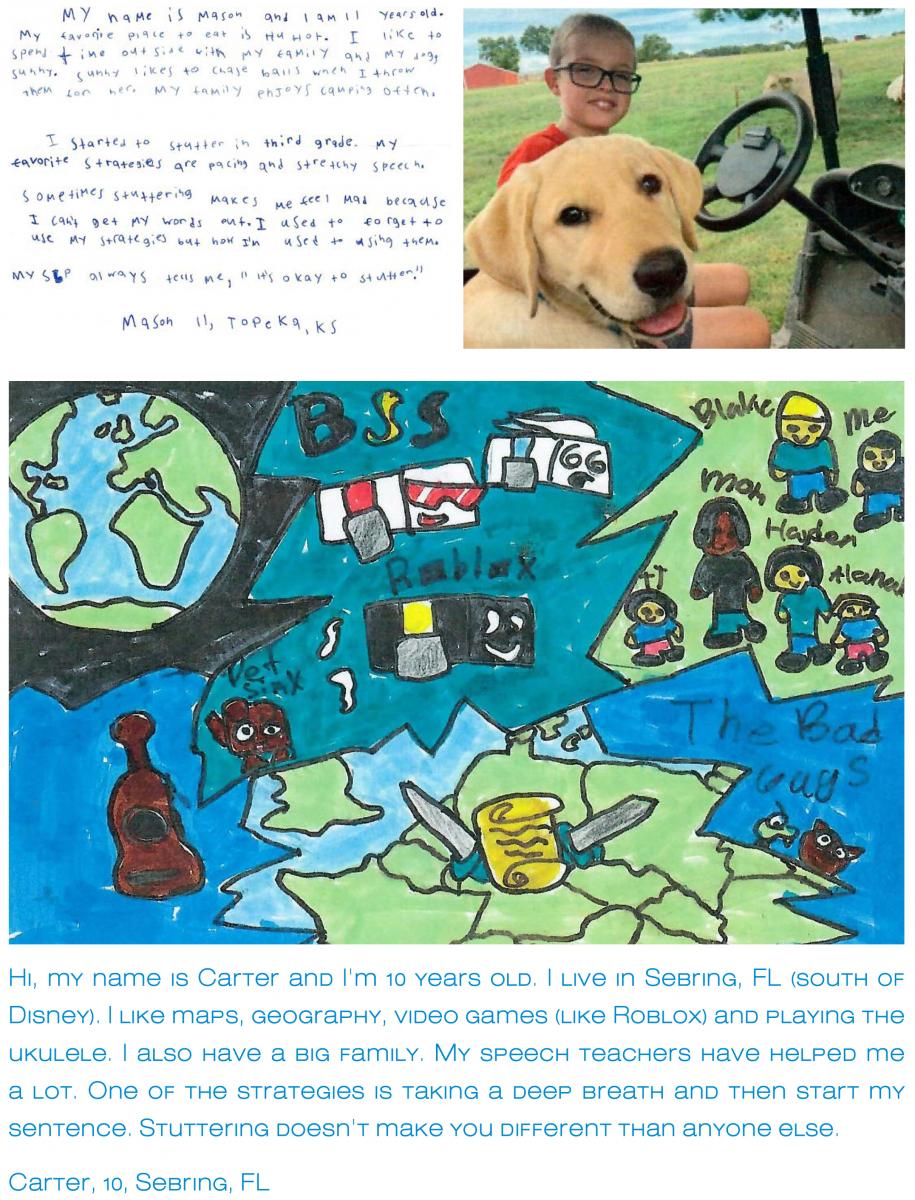 My name is Mason and I am 11 years old.
My favorite place to eat is HuHot. I like to
spend time outside with my family and my dog,
Sunny. Sunny likes to chase balls when I throw
them for her. My family enjoys camping often.
I started to stutter in third grade. My
favorite strategies are pacing and stretchy speech.
Sometimes stuttering makes me feel mad because
I can't get my words out. I used to forget to
use my strategies but now I'm used to using them.
My SLP always tells me, "it's okay to stutter!"
Mason 11, Topeka, KS
BSS
Roblox
Vet
Simx
Blake
Me
Mom
Hayden
TJ
The Bad
Guys
Hi, my name is Carter and I'm 10 years old. I live in Sebring, FL (south of
Disney). I like maps, geography, video games (like Roblox) and playing the
ukulele. I also have a big family. My speech teachers have helped me
a lot. One of the strategies is taking a deep breath and then start my
sentence. Stuttering doesn't make you different than anyone else.
Carter, 10, Sebring, FL